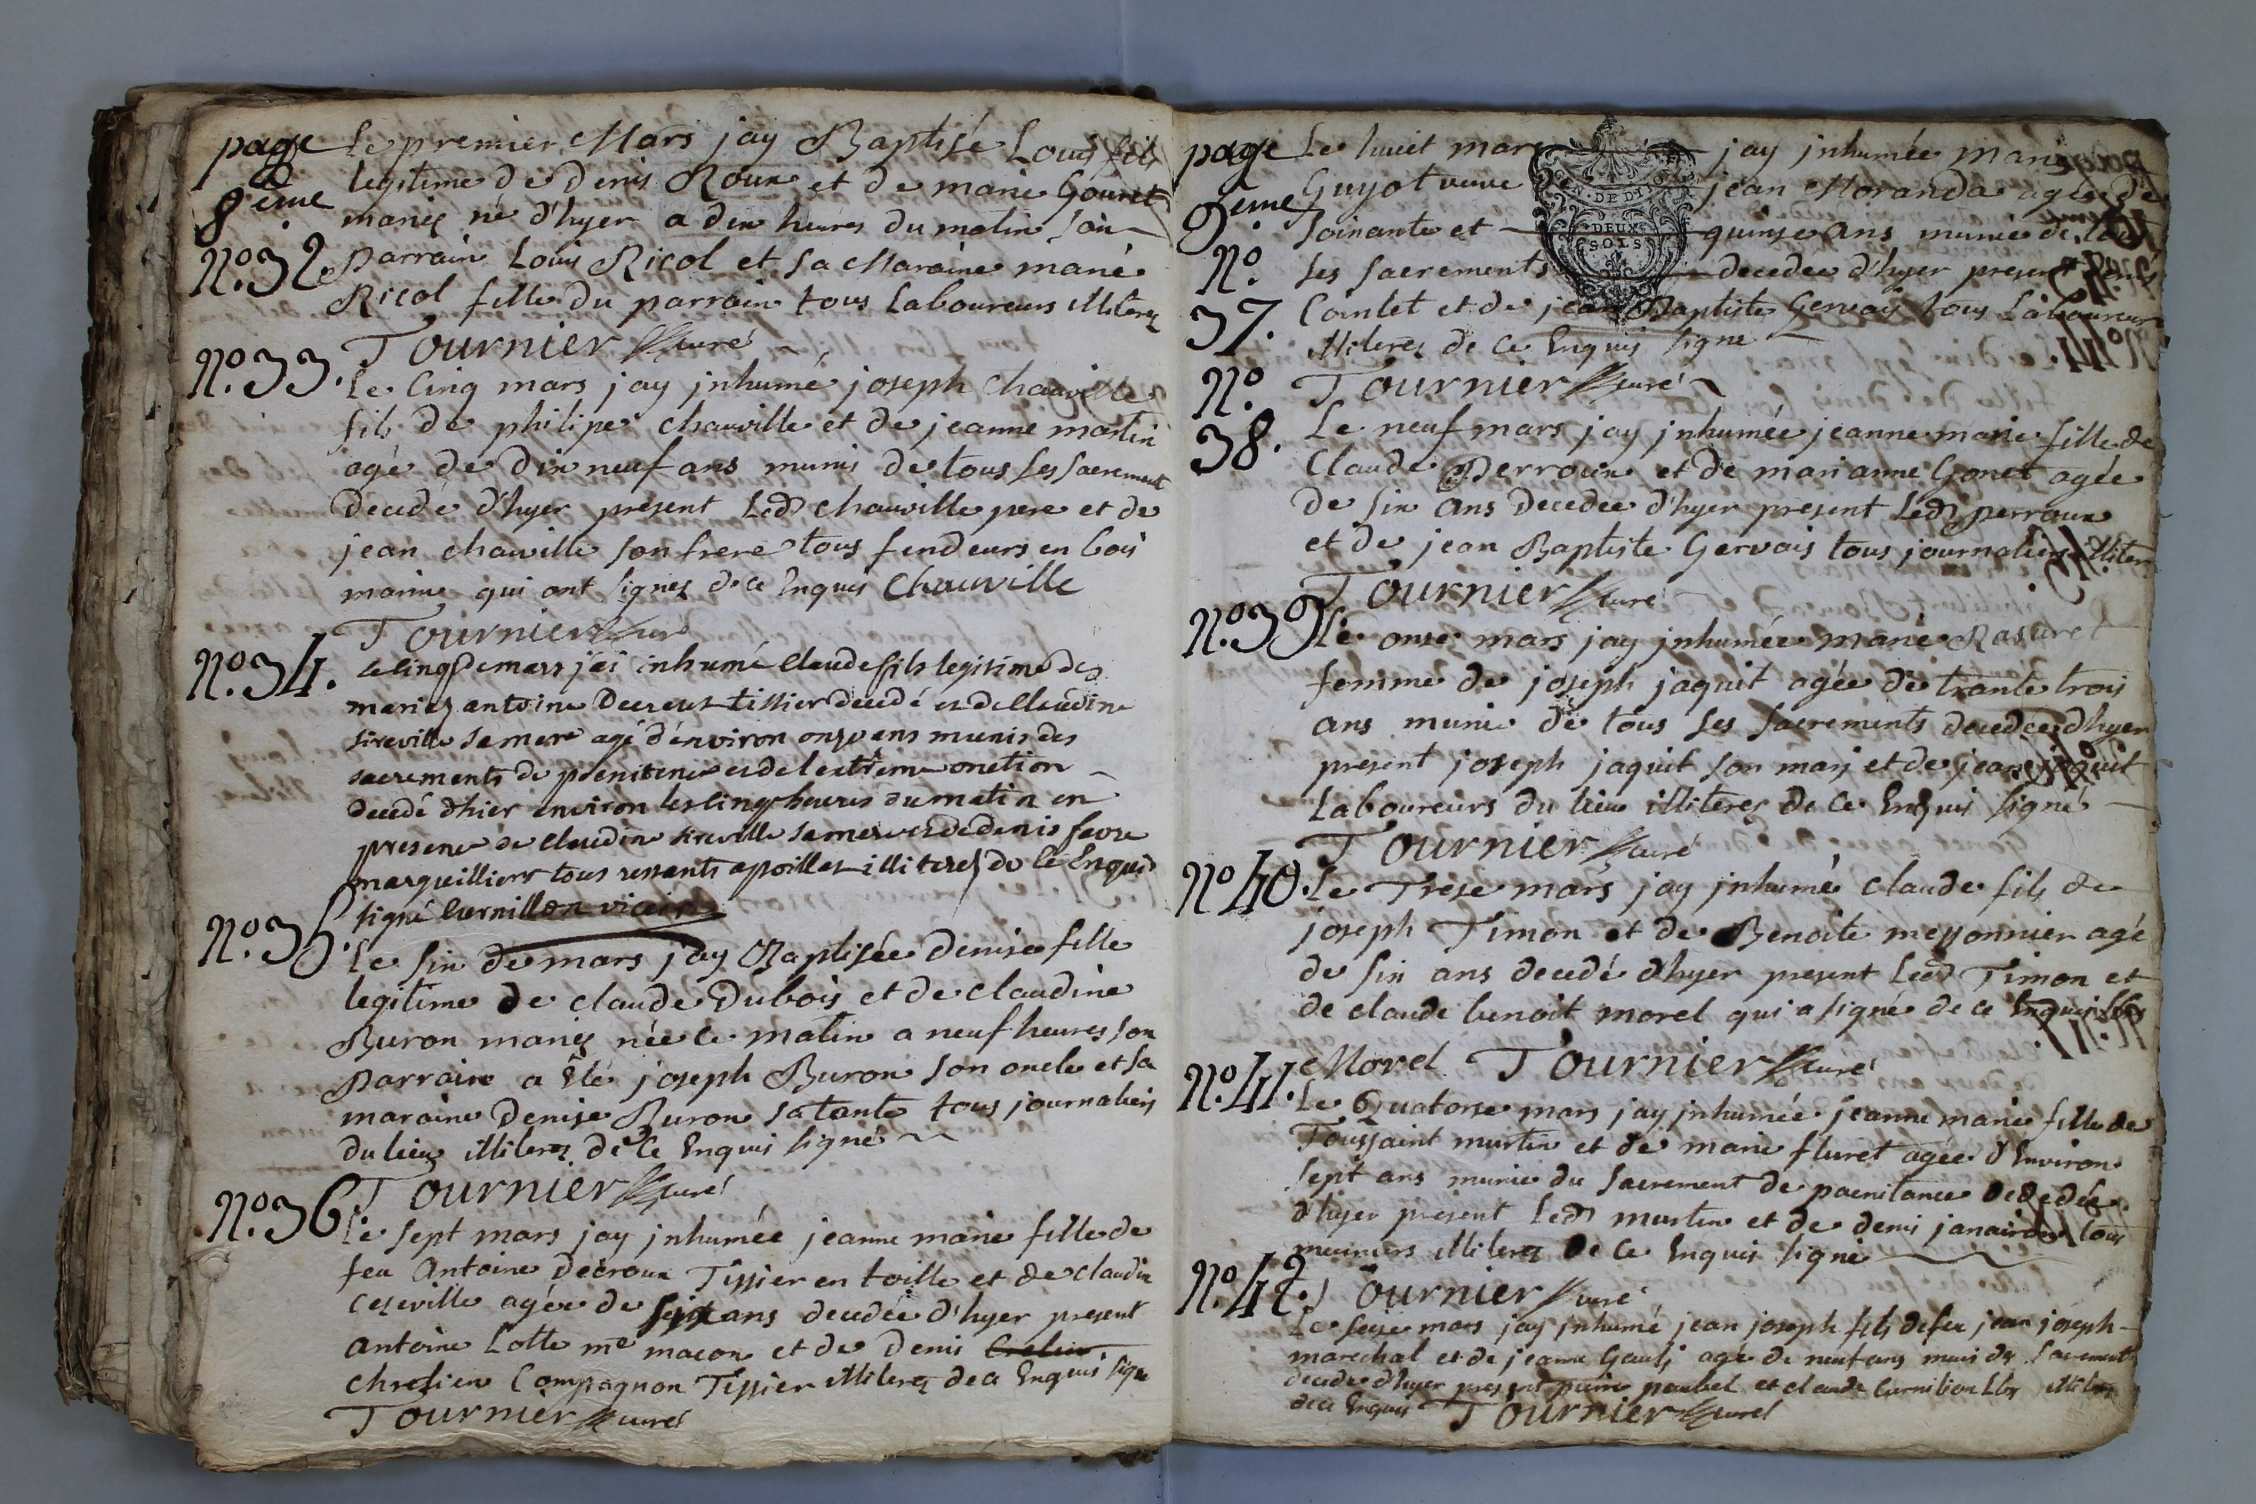 page
8eme
No. 32.
Le premier Mars jay Baptisé Louis fils
legitime de Denis Roux et de marie Gouret
mariez né d'hyer a dix heures du matin son
Parrain Louis Ricol et sa Maraine marie
Ricol fille du parrain tous Laboureurs illiterez
Tournier curé
No. 33.
Le Cinq mars jay jnhumé joseph chauville
fils de philipe chauville et de jeanne martin
agé de dix neuf ans munis de tous ses sacrement
decedé d'hyer present Led chauville pere et de
jean chauville son frere tous fendeurs en bois
qui ont signez de ce Enquis Chauville
Tournier curé
No. 34.
le cinq de mars j'ai inhumé Claude fils legitime des
mariez antoine Decreux tissier decedé et de Claudine
sireville sa mere agé d'environ onze ans munis des
sacrements de penitence et de l'extreme onction
decedé d'hier environ les cinq heures du matin en
presence de claudine sireville sa mere et de denis favre
marguilliers tous illiterez de ce Enquis
signé vicaire
No. 35.
Le six de mars jay Baptisée Denise fille
legitime de claude Dubois et de claudine
Buron mariez née ce matin a neuf heures son
Parrain a Eté joseph Buron son oncle et sa
maraine Denise Buron sa tante tous journaliers
du lieu illiterez de ce Enquis signé
Tournier curé
No. 36
Le sept mars jay jnhumée jeanne marie fille de
feu Antoine Decroux Tissier en toille et de claudine
Cezeville agée de six ans decedée d'hyer present
Antoine Lotte me macon et de Denis
chretien Compagnon Tissier illiterez de ce Enquis signé
Tournier curé
page
9eme
No.
37.
Le huict mars jay jnhumée marie
Guyot veuve de jean Moranda agée de
soixante et quinze ans munie de tous
ses sacrements decedée d'hyer present
Cointet et de jean Baptiste Gervais tous Laboureurs
illiterez de ce Enquis signé
GEN. DE DIJON
DEUX
SOLS
Tournier curé
No.
38.
Le neuf mars jay jnhumée jeanne marie fille de
Claude Perroux et de marianne Gonet agée
de six ans decedée d'hyer present Led perroux
et de jean Baptiste Gervais tous journaliers illiterez
Tournier curé
No. 39
Le onze mars jay jnhumée marie Rasuret
femme de joseph jaquit agée de trante trois
ans munie de tous ses sacrements decedée d'hyer
present joseph jaquit son mary et de jean jaquit
Laboureurs du lieu illiterez de ce Enquis signé
Tournier curé
No. 40.
Le Treze mars jay jnhumé claude fils de
joseph Timon et de Benoite meyonnier agé
de six ans decedé d'hyer present Led Timon et
de claude benoit morel qui a signé de ce Enquis
Morel Tournier curé
No. 41.
Le Quatorze mars jay jnhumée jeanne marie fille de
Toussaint murtin et de marie fluret agée d'Environ
sept ans munie du sacrement de paenitance decedée
d'hyer present Led murtin et de denis janairdon tous
meuniers illiterez de ce Enquis signé
Tournier curé
No. 42.
Le seize mars jay jnhumé jean joseph fils de feu jean joseph
marechal et de jeanne Gauls agé de neuf ans muni des sacrements
decedé d'hyer present et claude illiterez
de ce Enquis Tournier curé